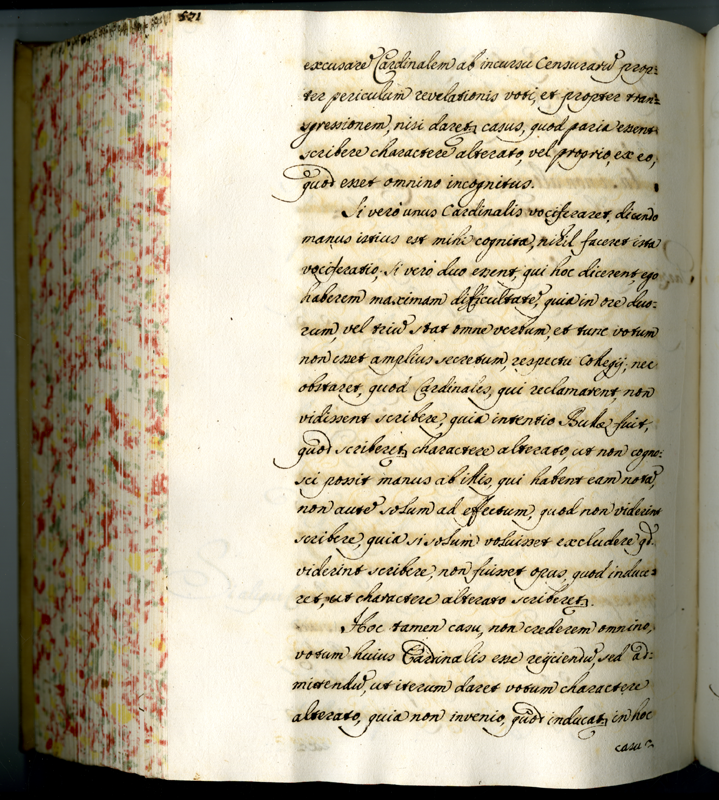 521
excusare Cardinalem ab incursu Censurarũ prop=
ter periculum revelationis voti, et propter tran=
sgressionem, nisi daretꝫ casus, quod paria essent
scribere charactere alterato, vel proprio, ex eo,
quod esset omnino incognitus.
Si verò unus Cardinalis vociferaret, dicendo
manus istius est mihi cognita, nihil faceret ista
vociferatio, si verò duo essent, qui hoc dicerent, ego
haberem maximam difficultatẽ, quia in ore duo=
rum, vel triũ stat omne verbum, et tunc votum
non esset amplius secretum, respectu Collegij; nec
obstaret, quod Cardinales, qui reclamarent, non
vidissent scribere, quia intentio Bullæ fuit,
quod scriberetꝫ charactere alterato, ut non cogno=
sci possit manus ab illis, qui habent eam notã,
non autẽ solum ad effectum, quod non viderint
scribere, quia si solum voluisset excludere qd.
viderint scribere, non fuisset opus, quod induce=
ret, ut charactere alterato scriberetꝫ.
Hoc tamen casu, non crederem omnino,
votum huius Cardinalis esse rejiciendũ, sed ad=
mittendũ, ut iterum daret votum charactere
alterato, quia non invenio, quod inducatꝫ in hoc
casu